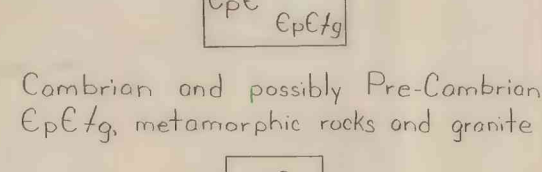 ЄpЄ
ЄpЄtg
Cambrian and possibly Pre-Cambrian
ЄpЄtg, metamorphic rocks and granite